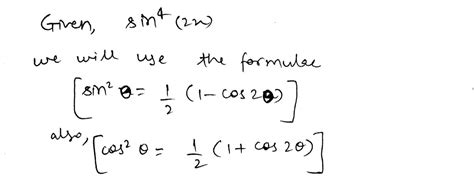 Given, sin⁴(2x)
we will use the formulae
[sin² θ = 1/2 (1 - cos 2θ)]
also, [cos² θ = 1/2 (1 + cos 2θ)]